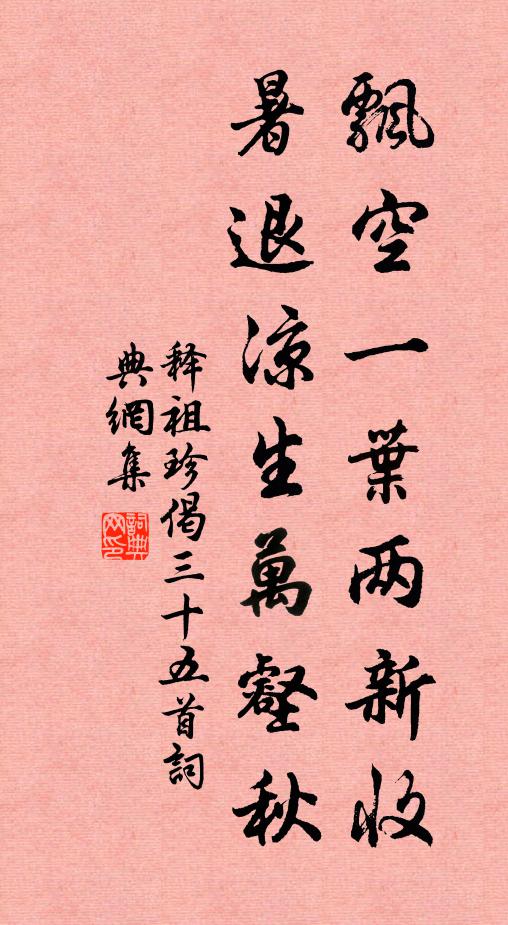 飄空一葉两新收
暑退凉生萬壑秋
释祖珍偈三十五首詞
典網集
詞典網印